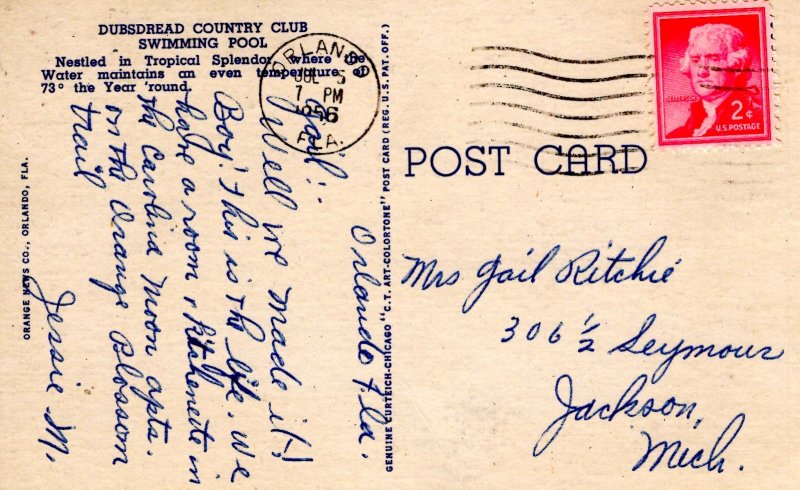 DUBSDREAD COUNTRY CLUB
SWIMMING POOL
Nestled in Tropical Splendor, where the
Water maintains an even temperature of
73° the Year 'round.
ORLANDO
JUL 5
7 PM
1956
FLA.
2¢
U.S. POSTAGE
POST CARD
Orlando Fla.
Gail:
Well we made it!
Boy! This is the life. We
have a room & Kitchenette in
the Carolina Moon apts.
on the Orange Blossom
trail
Jessie M.
Mrs Gail Ritchie
306 1/2 Seymour
Jackson,
Mich.
ORANGE NEWS CO., ORLANDO, FLA.
GENUINE CURTEICH-CHICAGO "C.T. ART-COLORTONE" POST CARD (REG. U.S. PAT. OFF.)